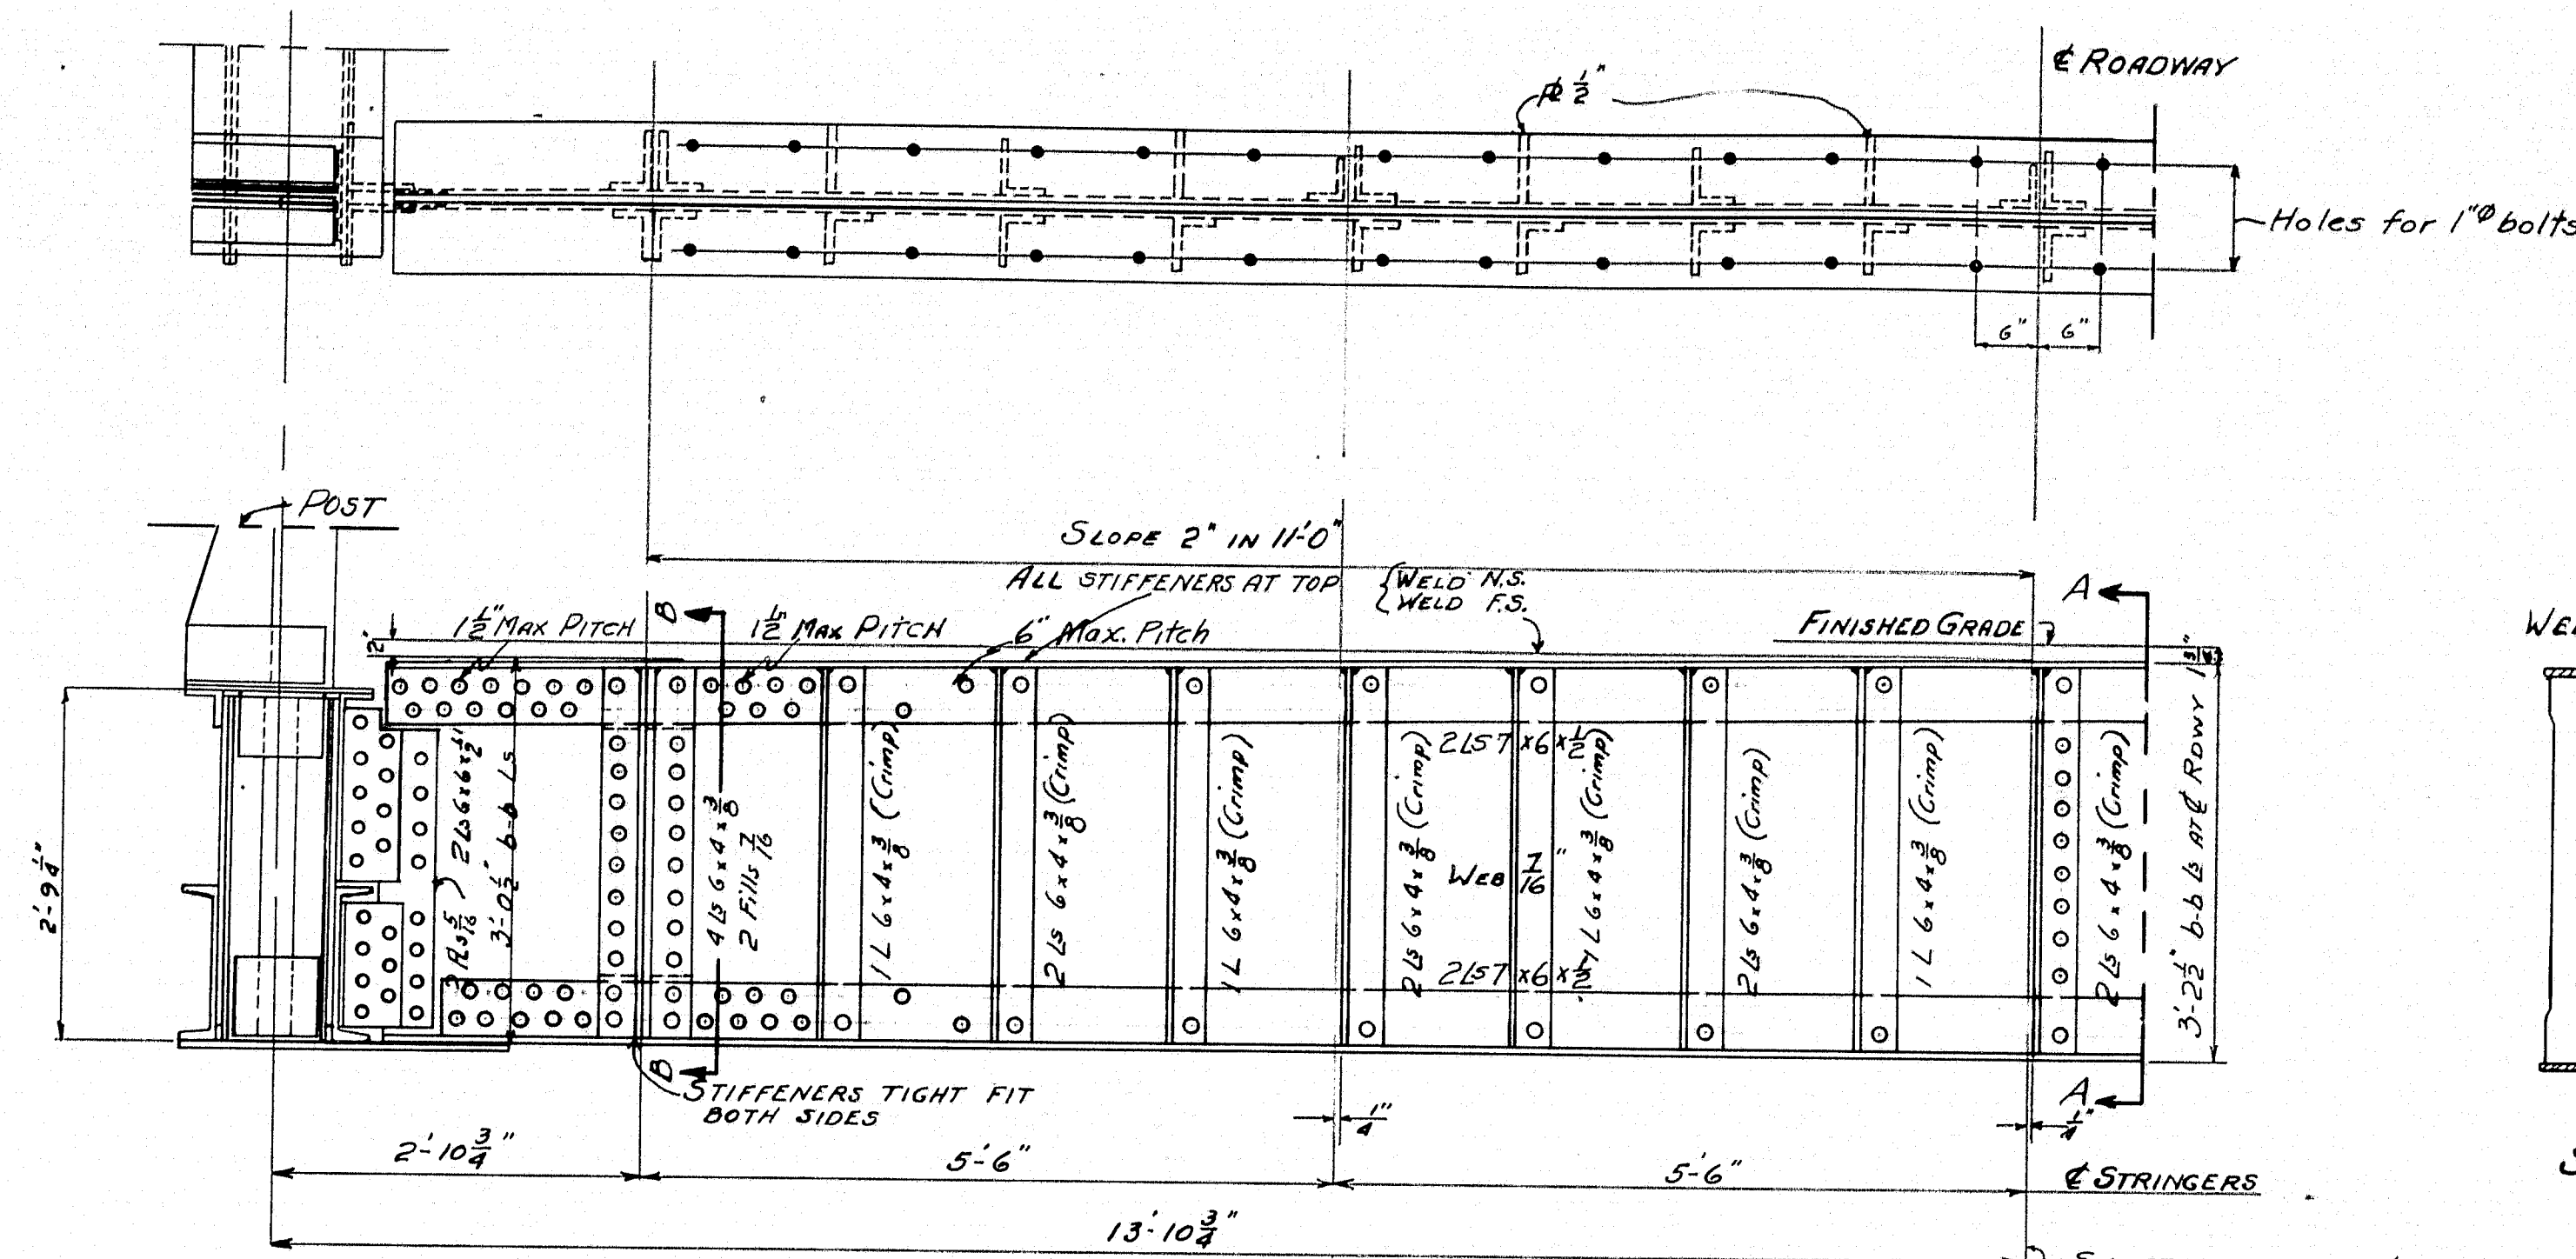 ℄ ROADWAY
℞ 1/2"
Holes for 1"Φ bolts
6" 6"
POST
SLOPE 2" IN 11'-0"
ALL STIFFENERS AT TOP
{WELD N.S.
{WELD F.S.
A
B
1 1/2" MAX PITCH
1 1/2" MAX PITCH
6" Max. Pitch
FINISHED GRADE
2"
2'-9 1/4"
2Ls 6x6x1/2
3'-0 1/2" b-b Ls
4 Ls 6x4x3/8
2 Fills 7/16
1 L 6x4x3/8 (Crimp)
2 Ls 6x4x3/8 (Crimp)
1 L 6x4x3/8 (Crimp)
2 Ls 6x4x3/8 (Crimp)
2Ls 7x6x1/2
WEB 7/16"
2Ls 7x6x1/2
1 L 6x4x3/8 (Crimp)
2 Ls 6x4x3/8 (Crimp)
1 L 6x4x3/8 (Crimp)
2 Ls 6x4x3/8 (Crimp)
3'-2 1/2" b-b Ls AT ℄ RDWY
B
STIFFENERS TIGHT FIT
BOTH SIDES
A
1/4"
1/4"
2'-10 3/4"
5'-6"
5'-6"
℄ STRINGERS
13'-10 3/4"